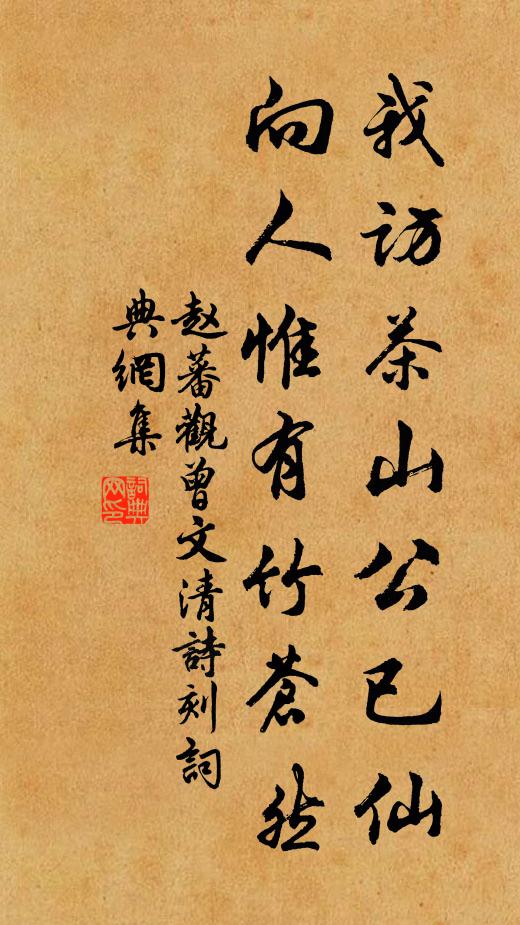 我访茶山公已仙
向人惟有竹蒼然
赵蕃觀曾文清詩刻詞
典網集
詞典
网印